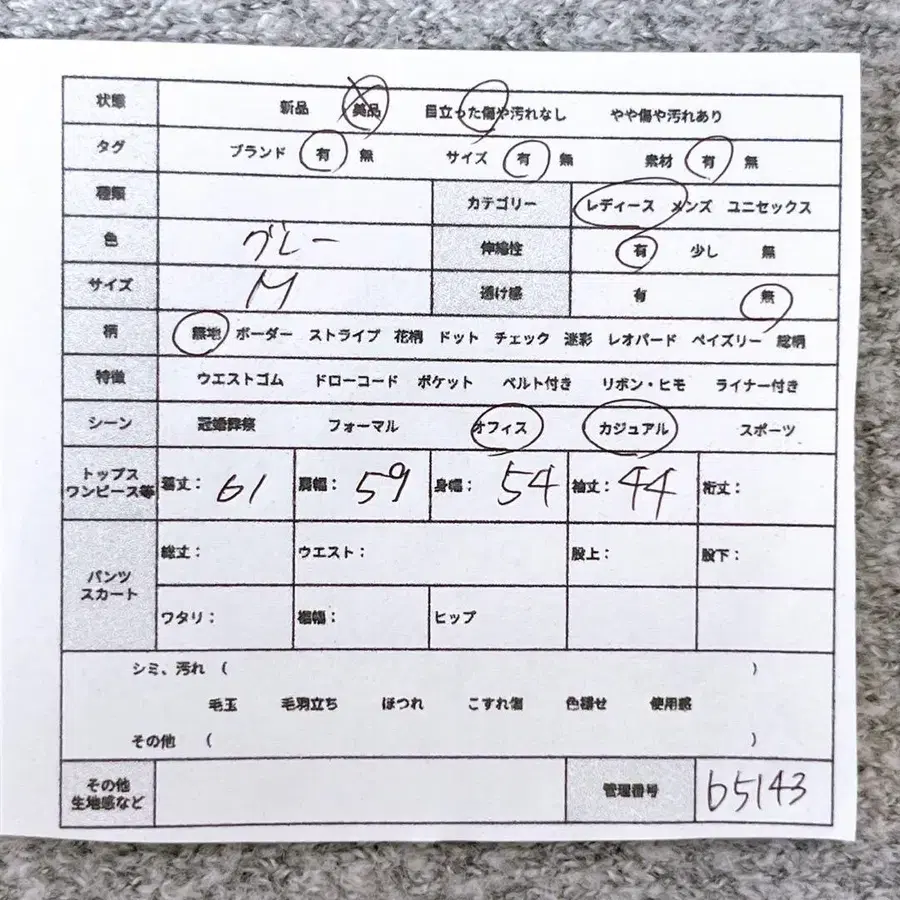 状態 新品 美品 目立った傷や汚れなし やや傷や汚れあり
タグ ブランド 有 無 サイズ 有 無 素材 有 無
種類 カテゴリー レディース メンズ ユニセックス
色 グレー 伸縮性 有 少し 無
サイズ M 透け感 有 無
柄 無地 ボーダー ストライプ 花柄 ドット チェック 迷彩 レオパード ペイズリー 総柄
特徴 ウエストゴム ドローコード ポケット ベルト付き リボン・ヒモ ライナー付き
シーン 冠婚葬祭 フォーマル オフィス カジュアル スポーツ
トップス
ワンピース等 着丈: 61 肩幅: 59 身幅: 54 袖丈: 44 裄丈:
パンツ
スカート 総丈: ウエスト: 股上: 股下:
ワタリ: 裾幅: ヒップ
シミ、汚れ ( )
毛玉 毛羽立ち ほつれ こすれ傷 色褪せ 使用感
その他 ( )
その他
生地感など 管理番号 b5143